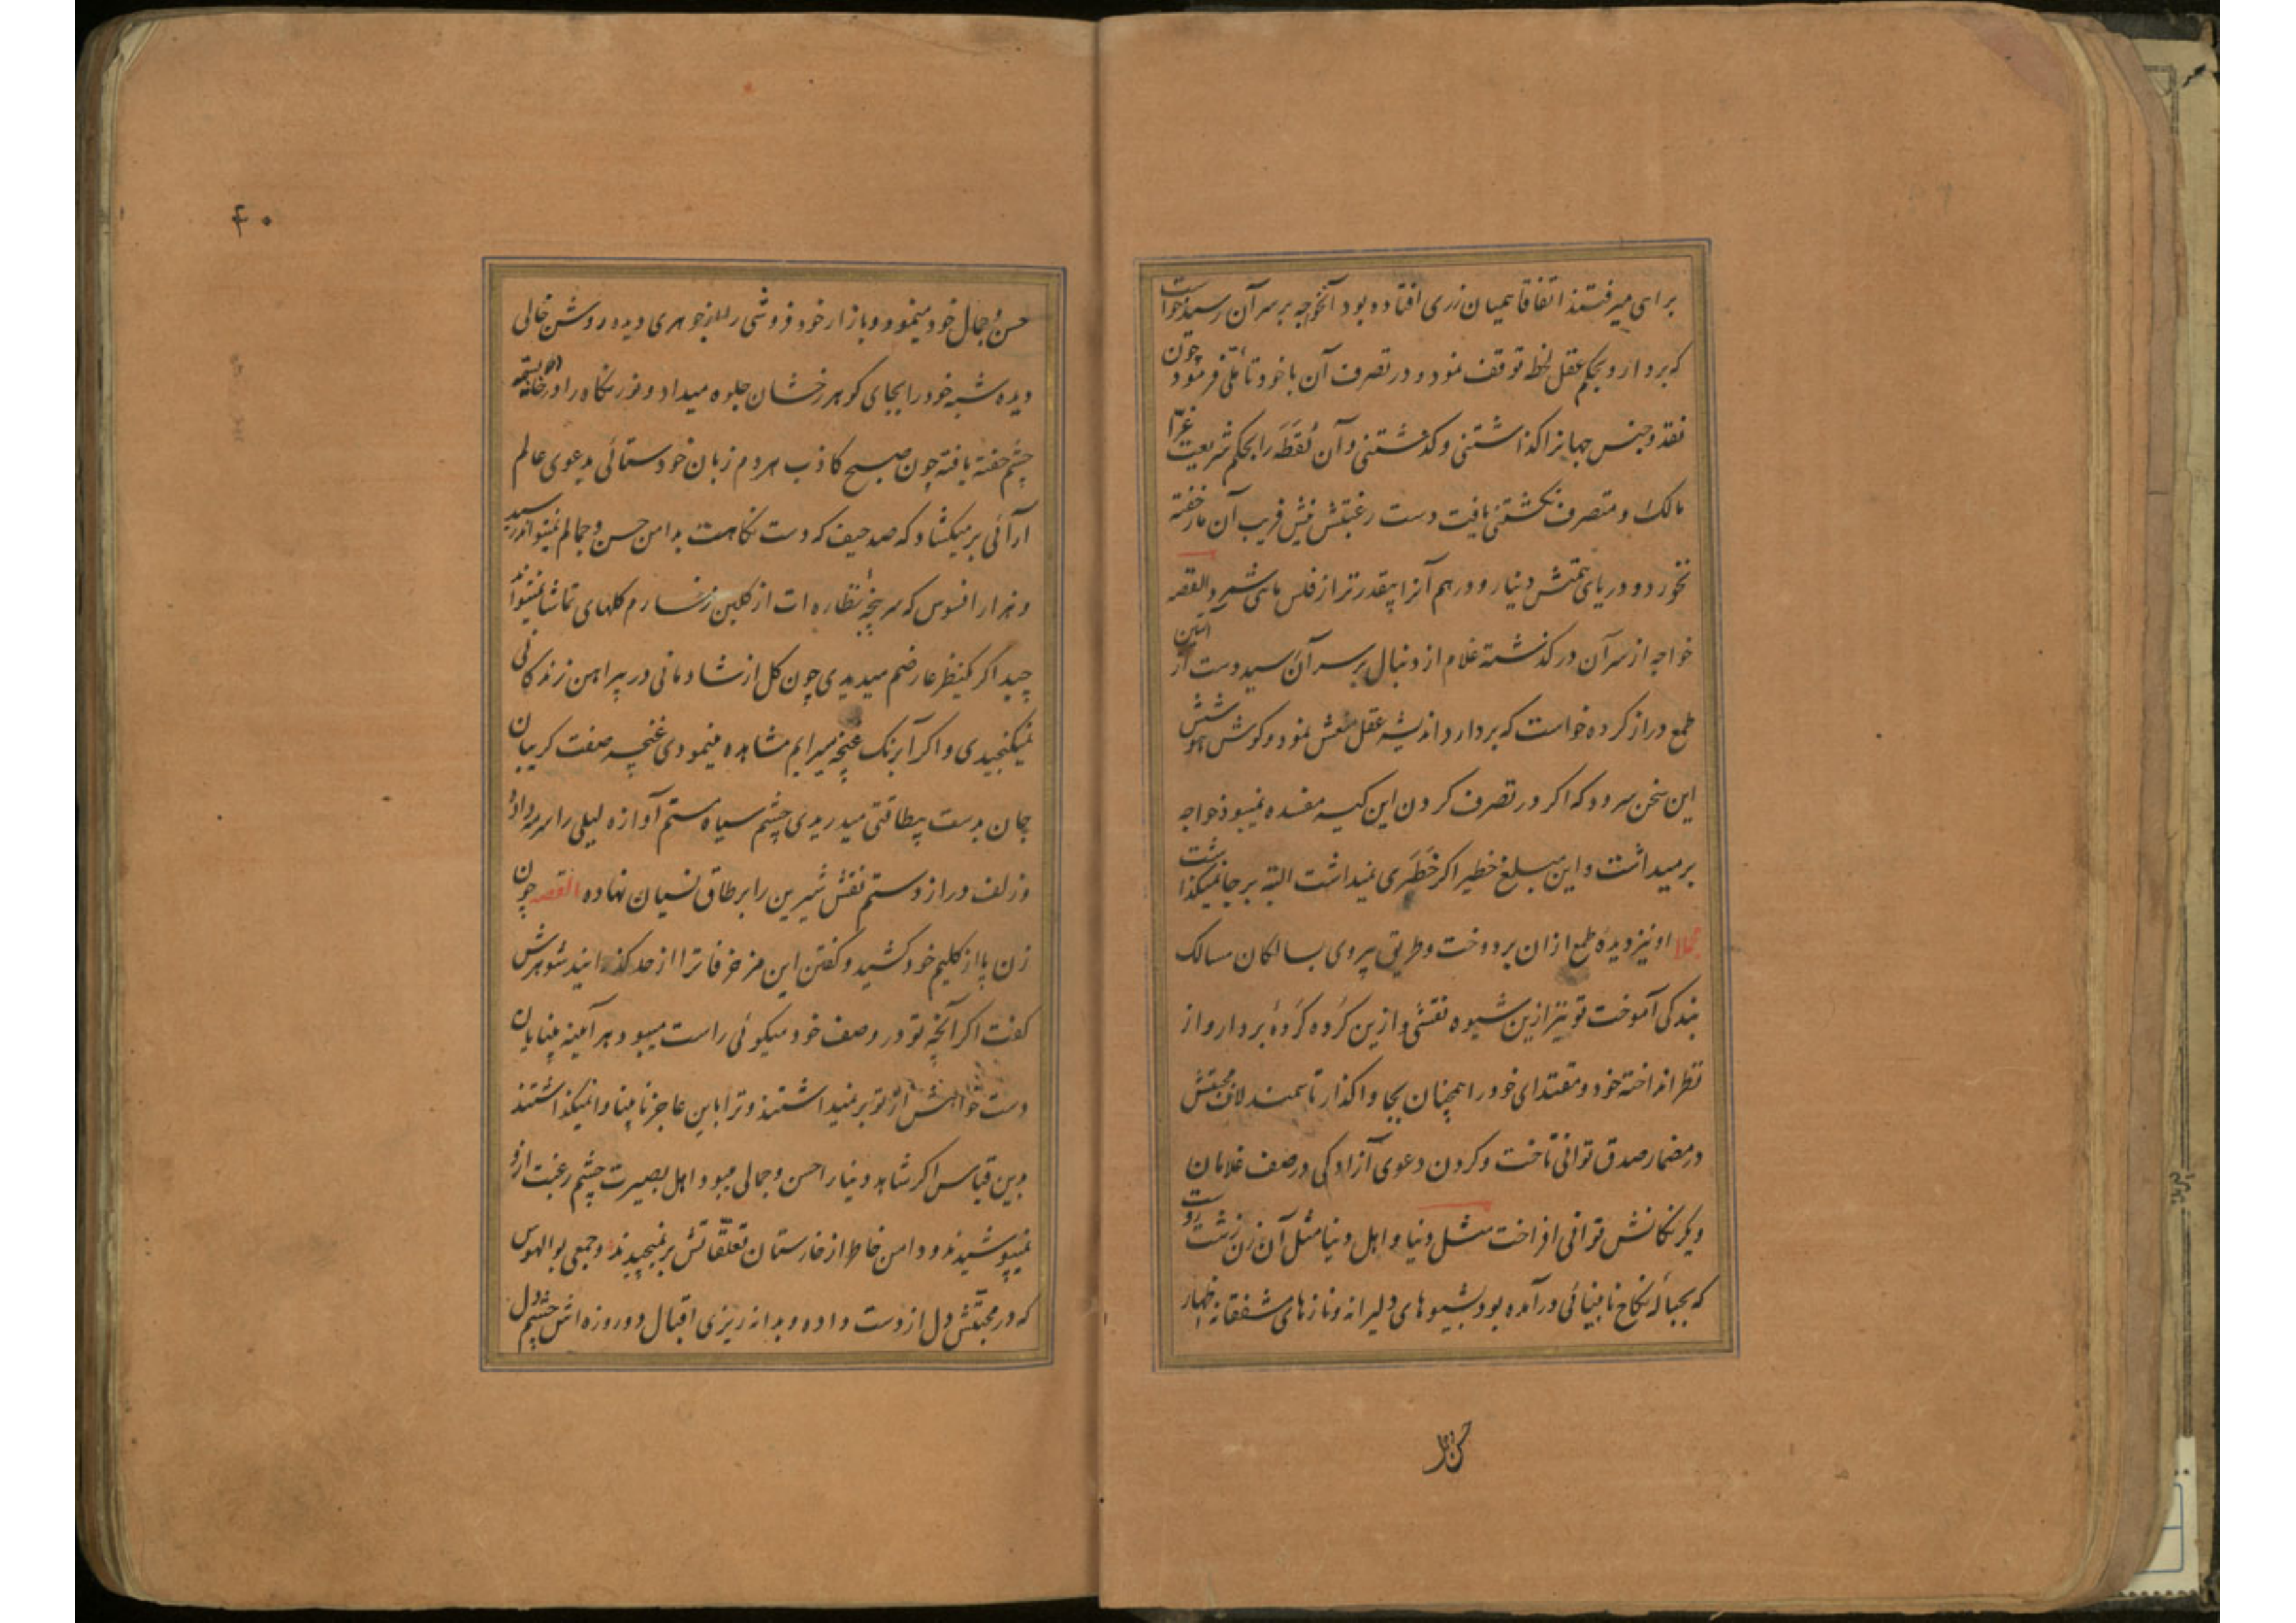 براهی میرفتند اتفاقا همیان زری افتاده بود آنخواجه بر سر آن رسید خواست
که بردارد بحکم عقل لحظه توقف نمود و در تصرف آن با خود تأملی فرمود چون
نقد و جنس جهانرا گذاشتنی و گذشتنی و آن لُقَطَه را بحکم شریعت غرّا
مالک و متصرف نگشتنی یافت دست رغبتش نیش فریب آن مار خفته
نخورد و دریای همتش دینار و درهم آنرا بیقدرتر از فلس ماهی شمرد القصه
خواجه از سر آن در گذشته غلام از دنبال بر سر آن رسید دست از آستین
طمع دراز کرده خواست که بردارد اندیشه عقل منعش نمود و گوش هوشش
این سخن سرود که اگر در تصرف کردن این کیسه مفسده نمیبود خواجه
برمیداشت و این مبلغ خطیر اگر خَطَری نمیداشت البته بر جا نمیگذاشت
مجملا او نیز دیده طمع ازان بردوخت و طریق پیروی بسالکان مسالک
بندگی آموخت تو نیز ازین شیوه نقشی و ازین کرده کَردهٔ بردار و از
نظر انداخته خود و مقتدای خود را همچنان بجا واگذار تا سمند لاف محبتش
در مضمار صدق توانی تاخت و گردن دعوی آزادگی در صف غلامان
و یکرنگانش توانی افراخت مثل دنیا و اهل دنیا مثل آن زن زشت روست
که بحبالهٔ نکاح نابینائی درآمده بود بشیوهای دلیرانه و نازهای مشفقانه اظهار
حسن و جمال
۴۰
حسن و جمال خود مینمود و بازار خود فروشی را از جوهری دیده روشن خالی
دیده شبه خود را بجای گوهر رخشان جلوه میداد و نور نگاه را در خانه
چشم خفته یافته چون صبح کاذب هر دم زبان خودستائی بدعوی عالم
آرائی برمیگشاد که صد حیف که دست نگاهت بدامن حسن و جمالم نمیتواند رسید
و هزار افسوس که سر پنجهٔ نظاره ات از گلبن رخسارم گلهای تماشا نمیتواند
چید اگر گلبنظر عارضم میدیدی چون گل از شادمانی در پیراهن زندگانی
نمیگنجیدی و اگر آبرنگ غنچه سیرابم مشاهده مینمودی غنچه صفت گریبان
جان بدست بیطاقتی میدریدی چشم سیاه مستم آوازه لیلی را سرمه داده
و زلف دراز دستم نقش شیرین را بر طاق نسیان نهاده القصه چون
زن پا از گلیم خود کشید و گفتن این مزخرفاترا از حد گذرانید شوهرش
گفت اگر آنچه تو در وصف خود میگوئی راست میبود هر آینه بینایان
دست خواهش از تو برنمیداشتند و ترا باین عاجز نابینا وانمیگذاشتند
بدین قیاس اگر شاهد دنیا را حسن و جمالی میبود اهل بصیرت چشم رغبت ازو
نمیپوشیدند و دامن خاطر از خارستان تعلّقاتش برنمیچیدند و جمعی بوالهوس
که در محبتش دل از دست داده و بدانه ریزی اقبال دو روزه اش چشم دل